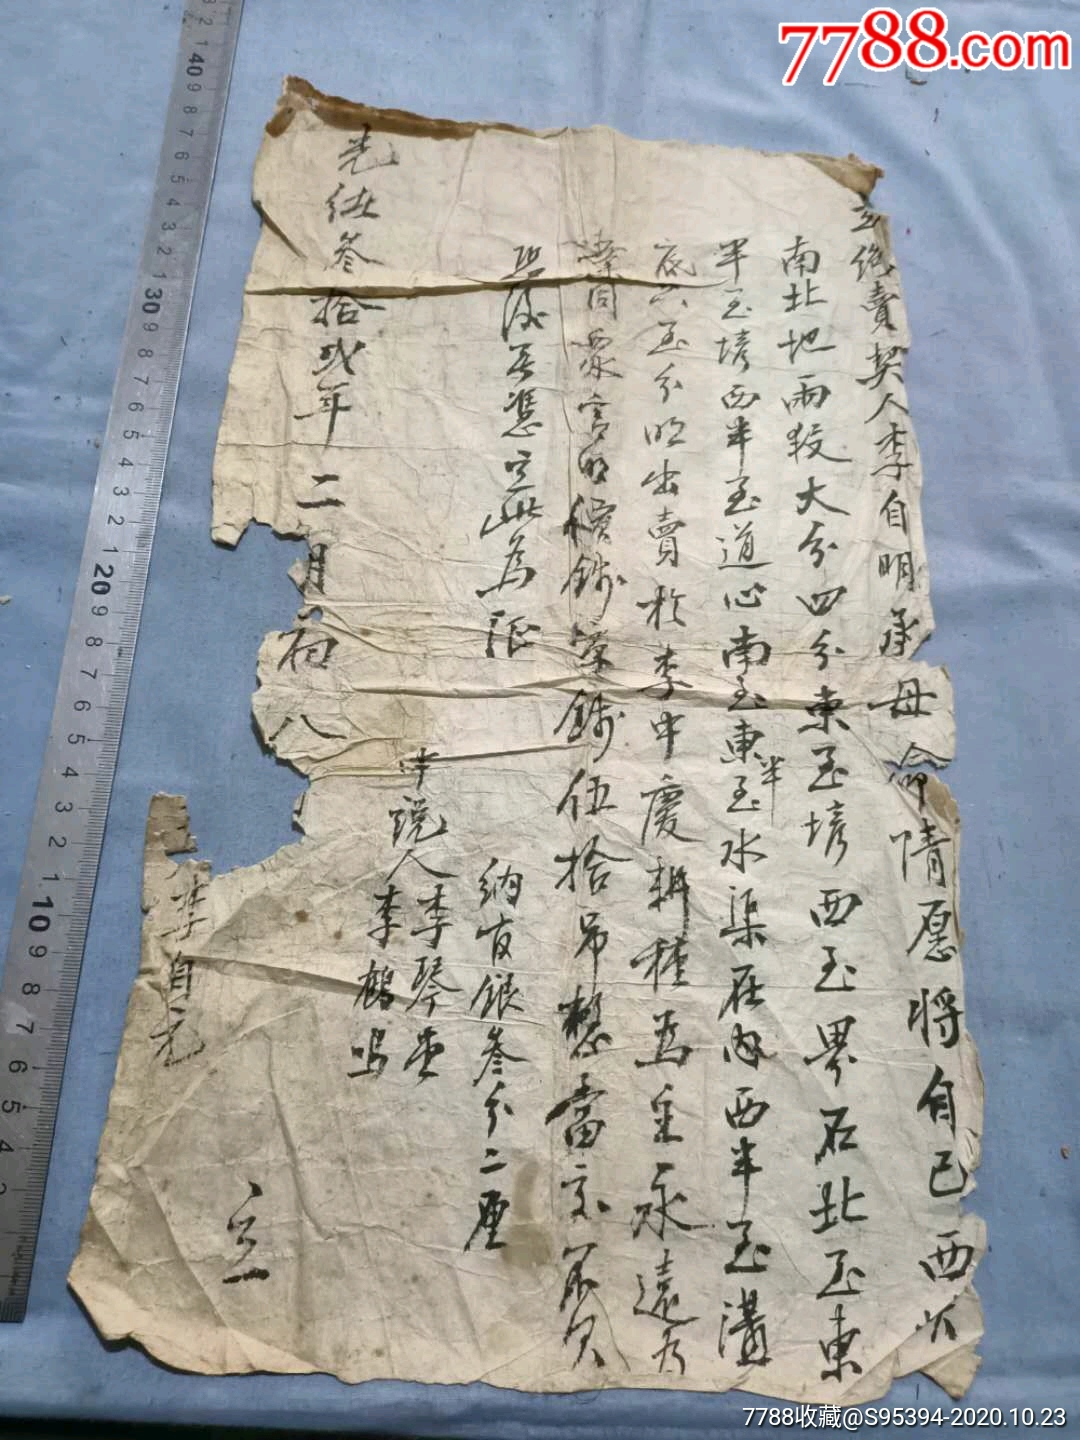 立絶賣契人李自明承母命情愿將自己西
南北地兩段大分四分東至塄西至畀石北至東
半至塄西半至道心南至東半至水渠在內西半至溝
底六至分明出賣於李中慶耕種為主永遠為
業同衆言明價錢錢伍拾吊整當交不欠
恐後無憑立此為証
納官銀叁分二厘
中説人李琴堂
李鶴鳴
光緒叁拾弍年二月初八
李自元
立
7788.com
7788收藏@S95394-2020.10.23